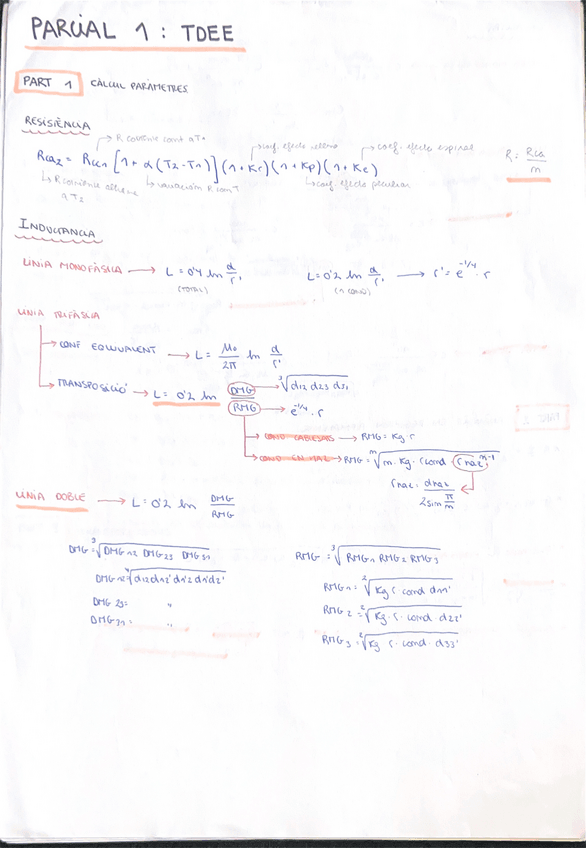 PARCIAL 1 : TDEE
PART 1 CÀLCUL PARÀMETRES
RESISTÈNCIA
R contínue cont a T1
coef. efecto relleno
coef. efecto espiral
Rca2 = Rcc1 [1 + α (T2 - T1)] (1 + Kr) (1 + Kp) (1 + Ke)
R = Rca / m
variación R con T
coef. efecto pelicular
a T2
INDUCTÀNCIA
LINIA MONOFÀSICA → L = 0'4 ln d / r' L = 0'2 ln d / r' → r' = e^-1/4 · r
(TOTAL) (1 COND)
LINIA TRIFÀSICA
CONF EQUIVALENT → L = μ0 / 2π ln d / r'
TRANSPOSICIÓ → L = 0'2 ln DMG / RMG
DMG → ∛ d12 d23 d31
RMG → e^-1/4 · r
COND CABLEJATS → RMG = Kg · r
COND EN HAZ → RMG = ᵐ√ m · Kg · r cond · r haz^m-1
r haz = d haz / 2 sin π/m
LINIA DOBLE → L = 0'2 ln DMG / RMG
DMG = ∛ DMG12 DMG23 DMG31
DMG12 = ∜ d12 d12' d1'2 d1'2'
DMG 23 = "
DMG 31 = "
RMG = ∛ RMG1 RMG2 RMG3
RMG1 = ²√ Kg · r · cond d11'
RMG 2 = ²√ Kg · r · cond · d22'
RMG3 = ²√ Kg · r · cond · d33'